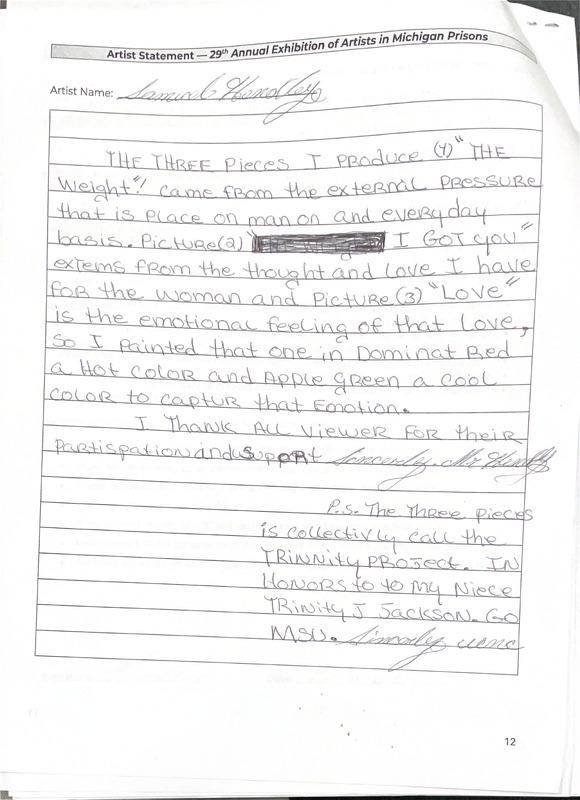 Artist Statement — 29th Annual Exhibition of Artists in Michigan Prisons
Artist Name: Samuel Hendley
THE THREE Pieces I PRODUCE (1) "THE
Weight"! came from the external PRESSURE
that is Place on man on and everyday
basis. Picture(2) " I GOT you"
extems from the thought and Love I have
for the woman and Picture (3) "Love"
is the emotional feeling of that Love,
So I Painted that one in Dominat Red
a Hot Color and Apple green a cool
Color to captur that Emotion.
I Thank ALL Viewer For their
Partispation and Support Sincerely, Mr Hendley
P.S. The Three pieces
is collectivly call the
TRinnity PROJect. IN
Honors to to My Niece
TRinity J Jackson. Go
MSU. Sincerley
12